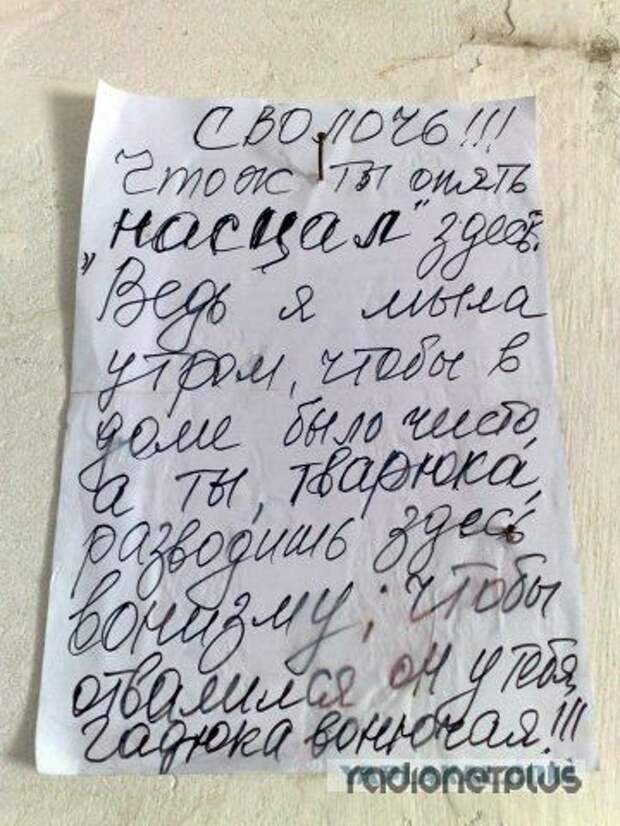 СВОЛОЧЬ!!!
Чтож ты опять
„насцал" здесь.
Ведь я мыла
утром, чтобы в
доме было чисто,
а ты, тварюка,
разводишь здесь
вонизму; чтобы
отвалился он у тебя,
гадюка вонючая!!!
radionetplus